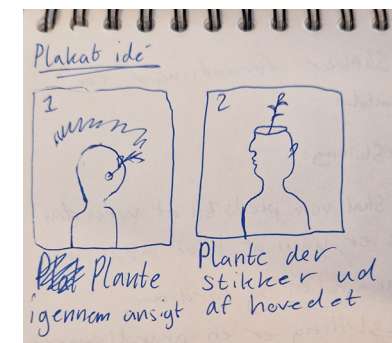 Plakat idé
1
Plante
igennem ansigt
2
Plante der
stikker ud
af hovedet